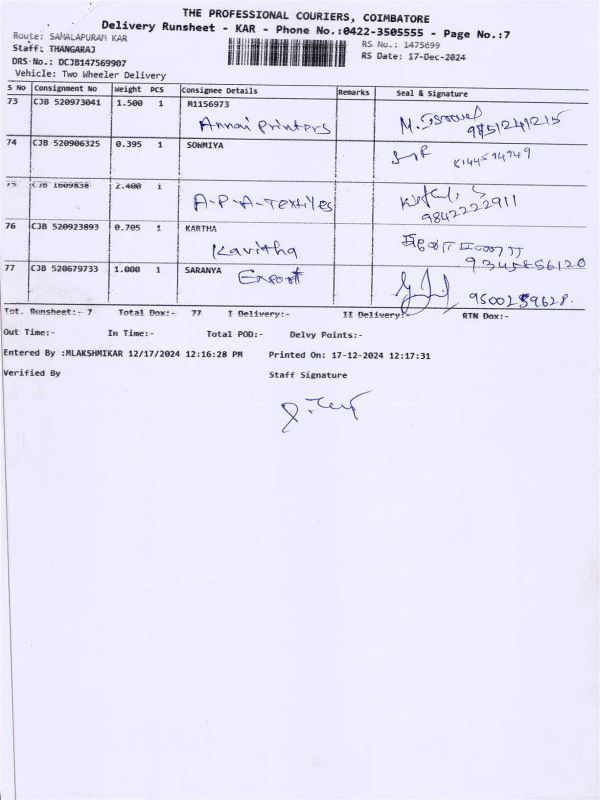 THE PROFESSIONAL COURIERS, COIMBATORE
Delivery Runsheet - KAR - Phone No.:0422-3505555 - Page No.:7
Route: SAMALAPURAM KAR
RS No.: 1475699
Staff: THANGARAJ
RS Date: 17-Dec-2024
DRS No.: DCJB147569907
Vehicle: Two Wheeler Delivery
S No Consignment No Weight PCS Consignee Details Remarks Seal & Signature
73 CJB 520973041 1.500 1 M1156973
Annai Printers 9751241215
74 CJB 520906325 0.395 1 SOWMIYA
75 CJB 1609838 2.400 1
A-P-A-Textiles
9842222911
76 CJB 520923893 0.705 1 KARTHA
Kavitha 9345856120
77 CJB 520679733 1.000 1 SARANYA
Export 9600259628.
Tot. Runsheet:- 7 Total Dox:- 77 I Delivery:- II Delivery:- RTN Dox:-
Out Time:- In Time:- Total POD:- Delvy Points:-
Entered By :MLAKSHMIKAR 12/17/2024 12:16:28 PM Printed On: 17-12-2024 12:17:31
Verified By Staff Signature